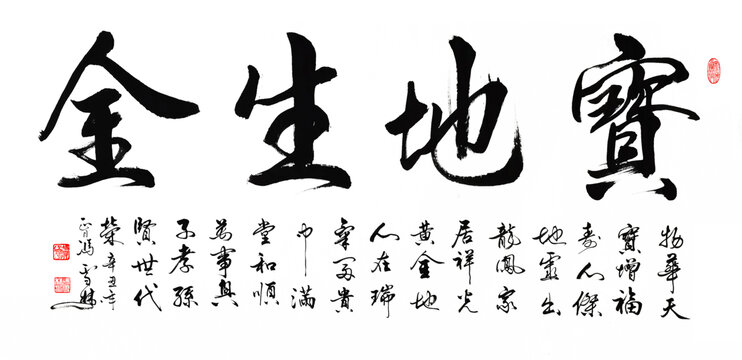 寶地生金
物華天
寶增福
壽人傑
地靈出
龍鳳家
居祥光
黃金地
人在瑞
氣富貴
中滿
堂和順
萬事興
子孝孫
賢世代
榮辛丑年
馮雪